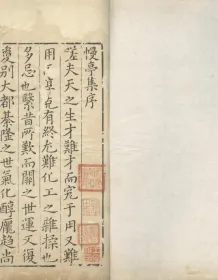 慢亭集序
嗟夫天之生才難才而完于用又難
用而享克有終尤難化工之雖操也
多忌也繫昔所歎而關之世運又復
變別大都綦隆之世氣化醇龎趨尚